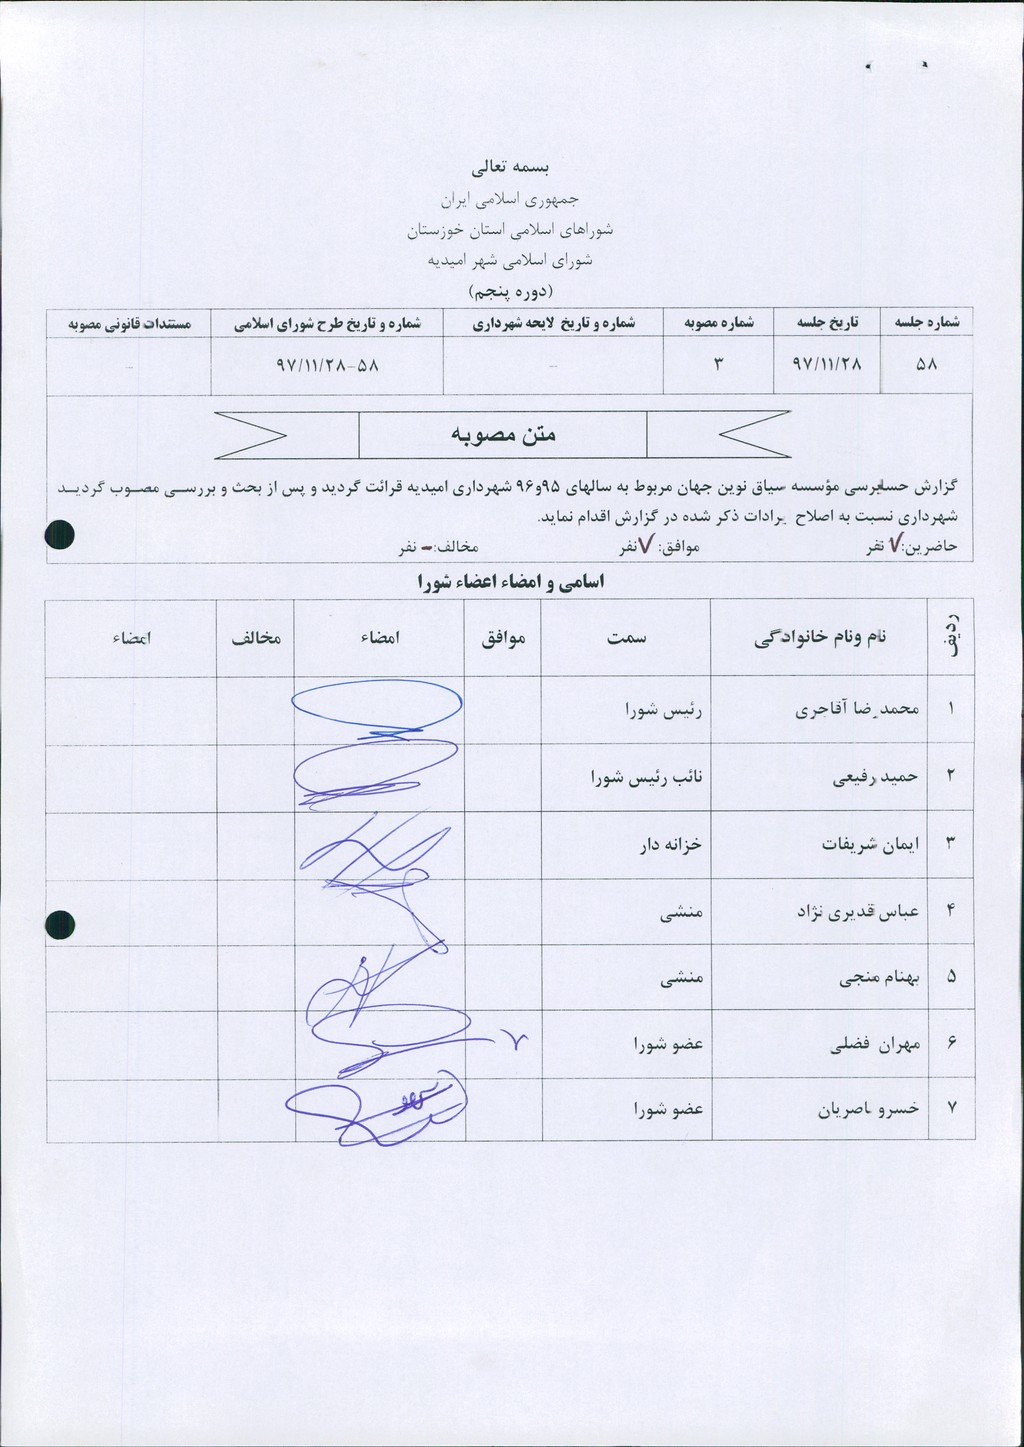 بسمه تعالی
جمهوری اسلامی ایران
شوراهای اسلامی استان خوزستان
شورای اسلامی شهر امیدیه
(دوره پنجم)
شماره جلسه تاریخ جلسه شماره مصوبه شماره و تاریخ لایحه شهرداری شماره و تاریخ طرح شورای اسلامی مستندات قانونی مصوبه
۵۸ ۹۷/۱۱/۲۸ ۳ - ۵۸-۹۷/۱۱/۲۸ -
متن مصوبه
گزارش حسابرسی مؤسسه سیاق نوین جهان مربوط به سالهای ۹۵و۹۶ شهرداری امیدیه قرائت گردید و پس از بحث و بررسی مصوب گردید
شهرداری نسبت به اصلاح یرادات ذکر شده در گزارش اقدام نماید.
حاضرین:۷ نفر موافق:۷ نفر مخالف:- نفر
اسامی و امضاء اعضاء شورا
ردیف نام ونام خانوادگی سمت موافق امضاء مخالف امضاء
۱ محمدرضا آقاجری رئیس شورا
۲ حمید رفیعی نائب رئیس شورا
۳ ایمان شریفات خزانه دار
۴ عباس قدیری نژاد منشی
۵ بهنام منجی منشی
۶ مهران فضلی عضو شورا ۷
۷ خسرو ناصریان عضو شورا